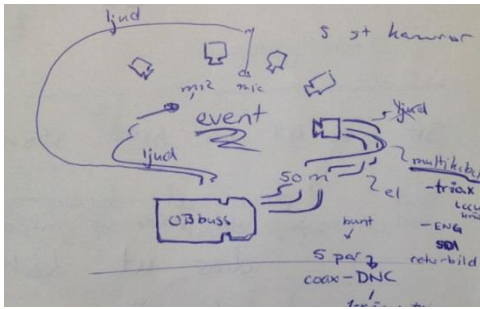 ljud
5 st kameror
mic
mic
event
ljud
ljud
50 m
multikabel
-triax
el
OBbuss
-ENG
SDI
returbild
bunt
5 par
coax-DNC